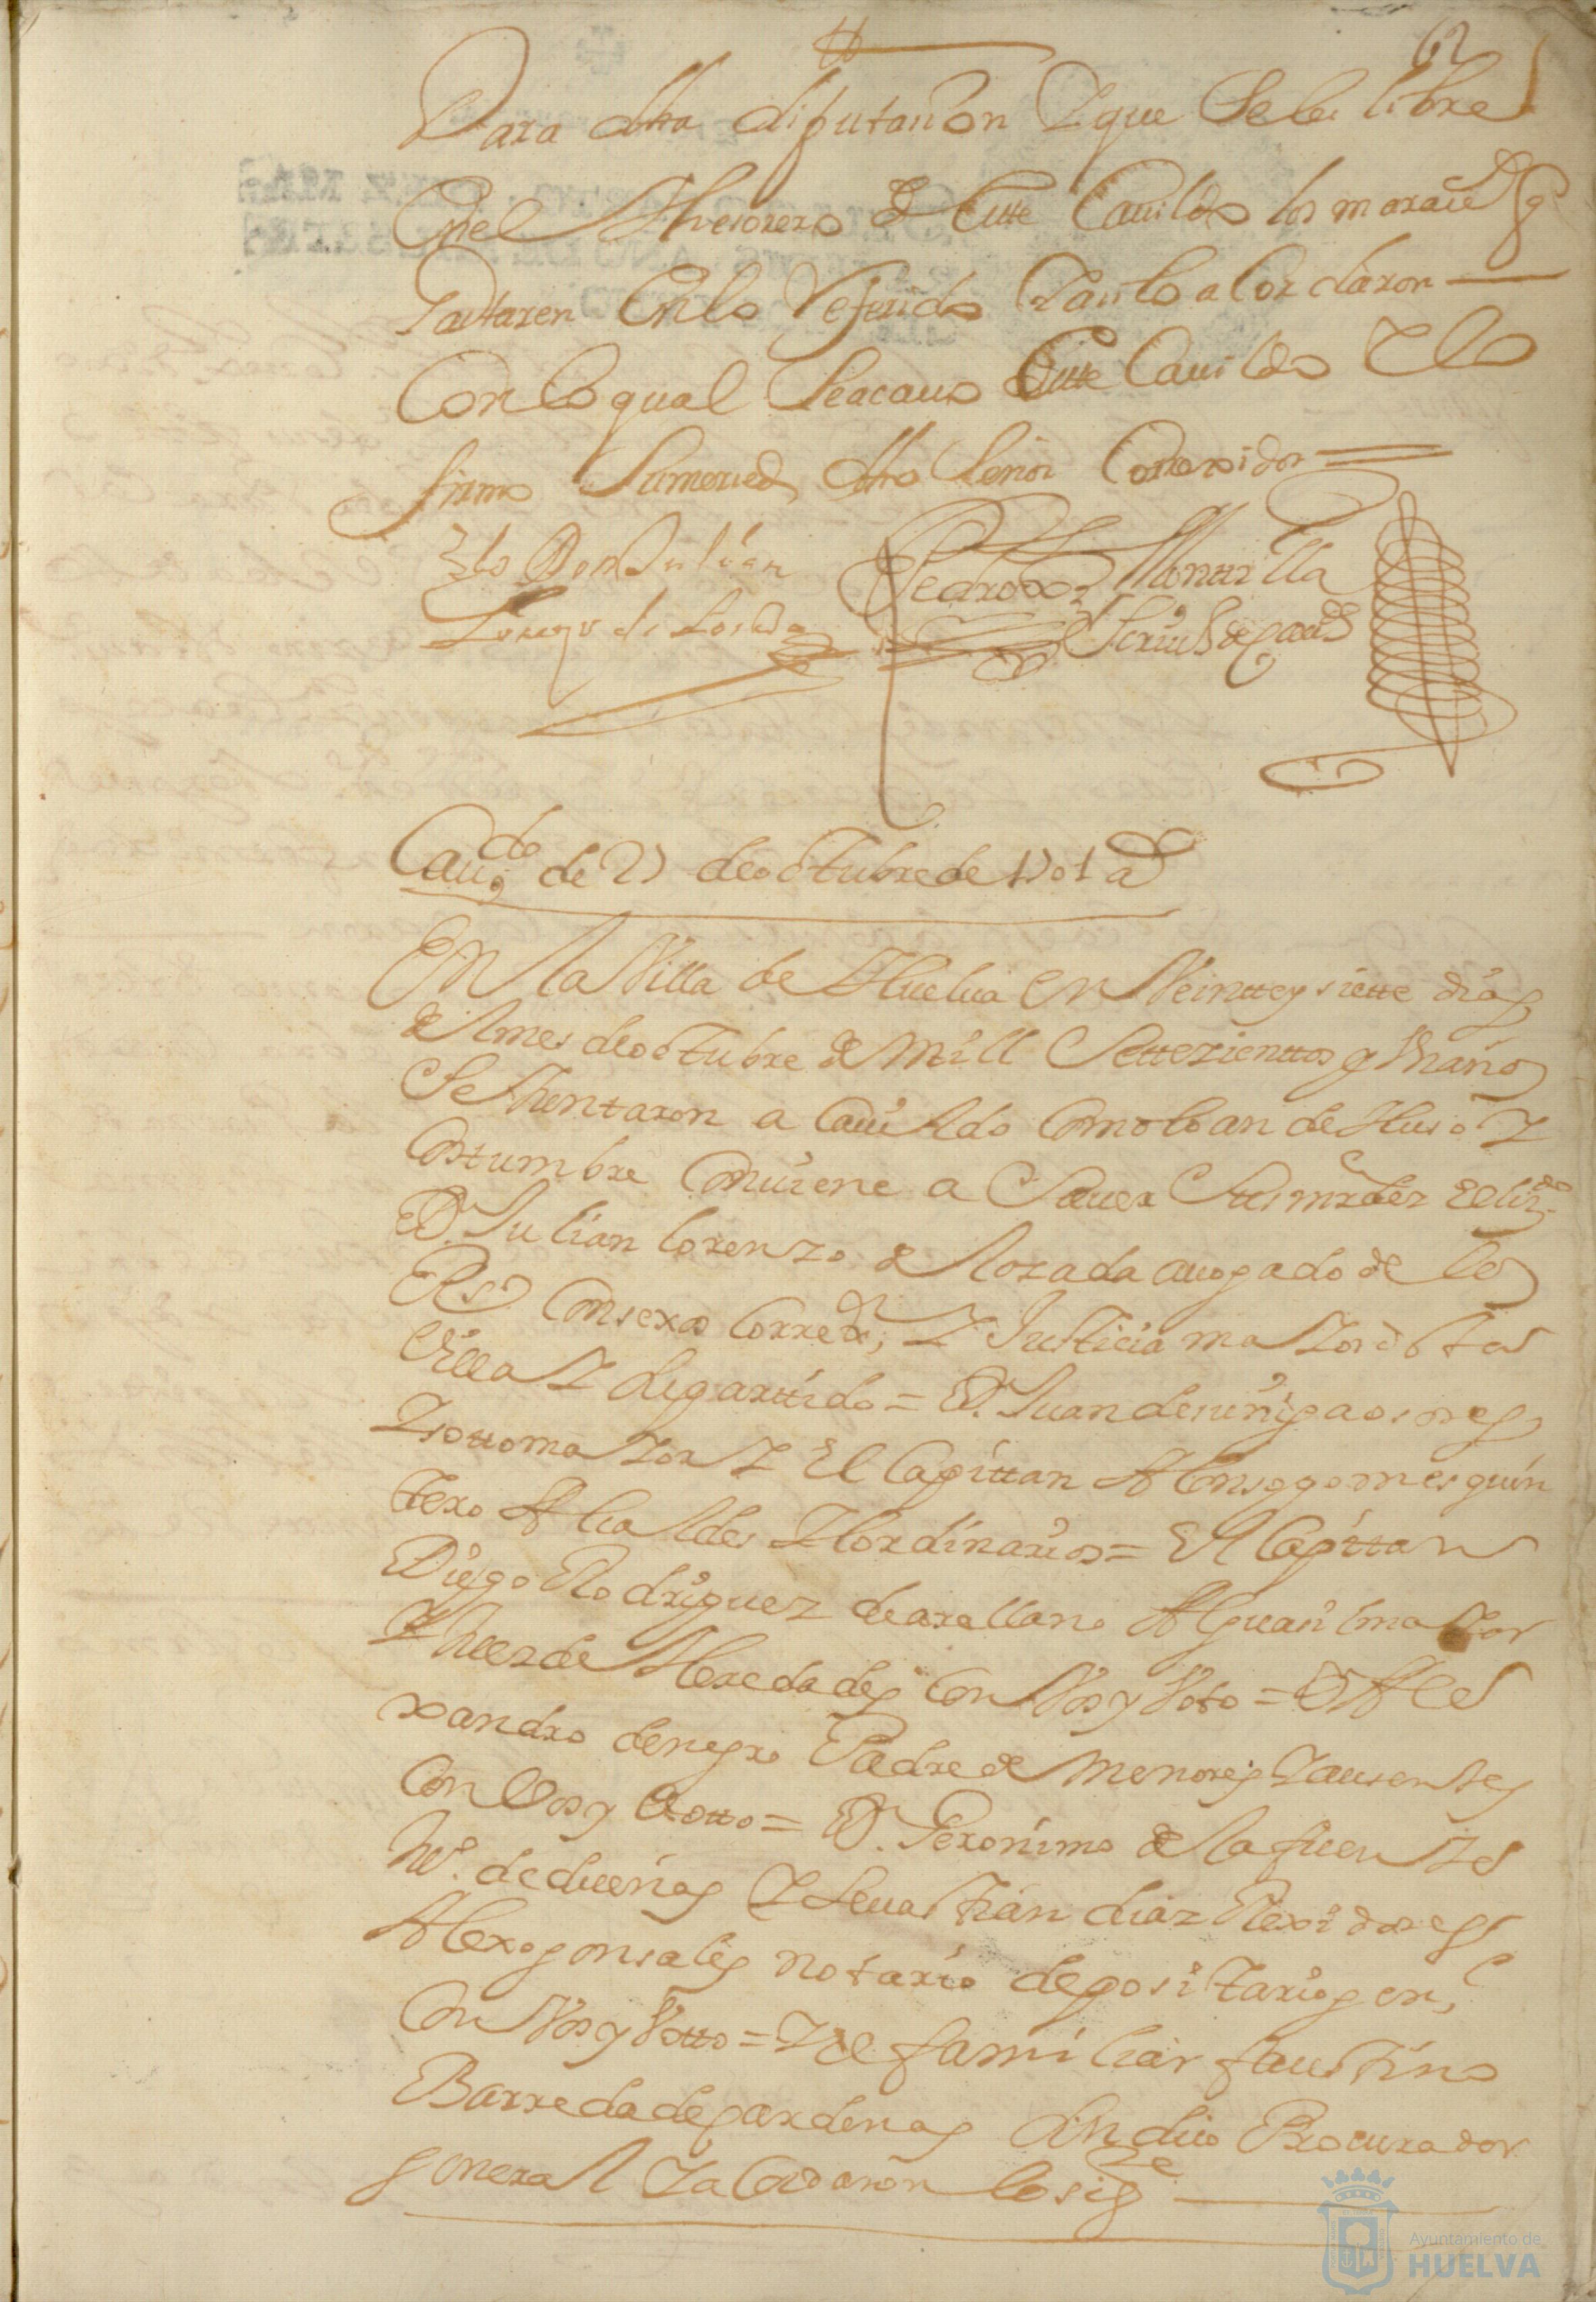 62
Para dha diputazion Y que Se les libre
En el Thesorero de Este Cauildo los maraues q
Gastaren En lo Referido Y anlo a Cordaron
Con lo qual Seacauo Este Cauildo Y lo
firmo Sumerced dho Señor Correxidor
Lzdo Don Julian
Lorenzo de Losada
Pedro Montilla
Scriu de Cauildo
Cauo de 27 de octubre de 1701 as
En la Villa de Huelua en Veintte y siette dias
del mes de octubre de mill Settezienttos y Vn años
Se Thuntaron a Cauildo Como lo an de Huso Y
Costumbre Conuiene a Sauer Sus mrzdes El lizdo
D. Julian lorenzo de lozada auogado de los
Rs Consexos Corredor, Y Justicia maYor desta
Villa Y de partido = D. Juan de suñiga osores
Y sottomaYor Y El Capittan Alonso gomes quin
tero Alcaldes Hordinarios = El Capittan
Diego Rodriguez de arellano Alguasil maYor
Y huez de Heredades Con Vos y Voto = D Ale
xandro de negro Padre de menores Y ausentes
Con Vos y Votto = D. Geronimo de la fuente
Ho. de dueñas Y Seuastian diaz Rexidores
Alexo gonsales notario depositario gen,l
Con Vos y Votto = Y el familiar faustino
Barreda de cardenas Sindico Procurador
general Y aCordaron lo sige
Ayuntamiento de
HUELVA